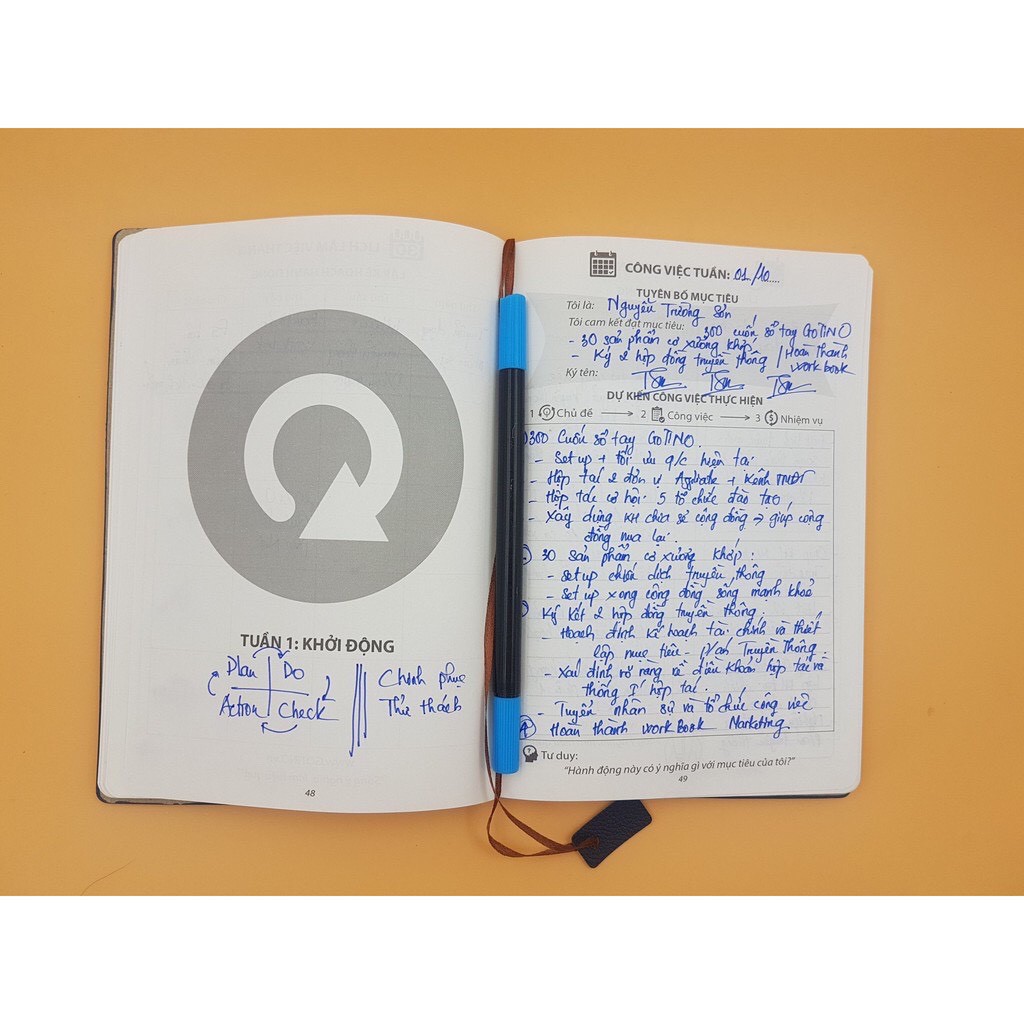 TUẦN 1: KHỞI ĐỘNG
Plan Do
Action Check
Chinh phục
Thử thách
48
CÔNG VIỆC TUẦN: 01/10....
TUYÊN BỐ MỤC TIÊU
Tôi là: Nguyễn Trường Sơn
Tôi cam kết đạt mục tiêu: 300 cuốn sổ tay GoTINO
- 30 sản phẩm cơ xương khớp
- Ký 2 hợp đồng truyền thông / Hoàn thành
workbook
Ký tên:
DỰ KIẾN CÔNG VIỆC THỰC HIỆN
1 Chủ đề → 2 Công việc → 3 Nhiệm vụ
300 Cuốn sổ tay GoTINO.
- Set up + tối ưu q/c hiện tại
- Hợp tác 2 đơn vị + Kênh TMĐT
- Hợp tác cơ hội 5 tổ chức đào tạo
- Xây dựng KH chia sẻ cộng đồng → giúp cộng
đồng mua lại.
30 sản phẩm cơ xương khớp:
- Set up chiến dịch truyền thông
- Set up xong cộng đồng sống mạnh khoẻ
Ký kết 2 hợp đồng truyền thông.
- Hoạch định kế hoạch tài chính và thiết
lập mục tiêu - Truyền Thông.
- Xác định rõ ràng về điều khoản hợp tác và
thông hợp tác.
- Tuyển nhân sự và tổ chức công việc
4 Hoàn thành workBook Marketing
Tư duy:
"Hành động này có ý nghĩa gì với mục tiêu của tôi?"
49